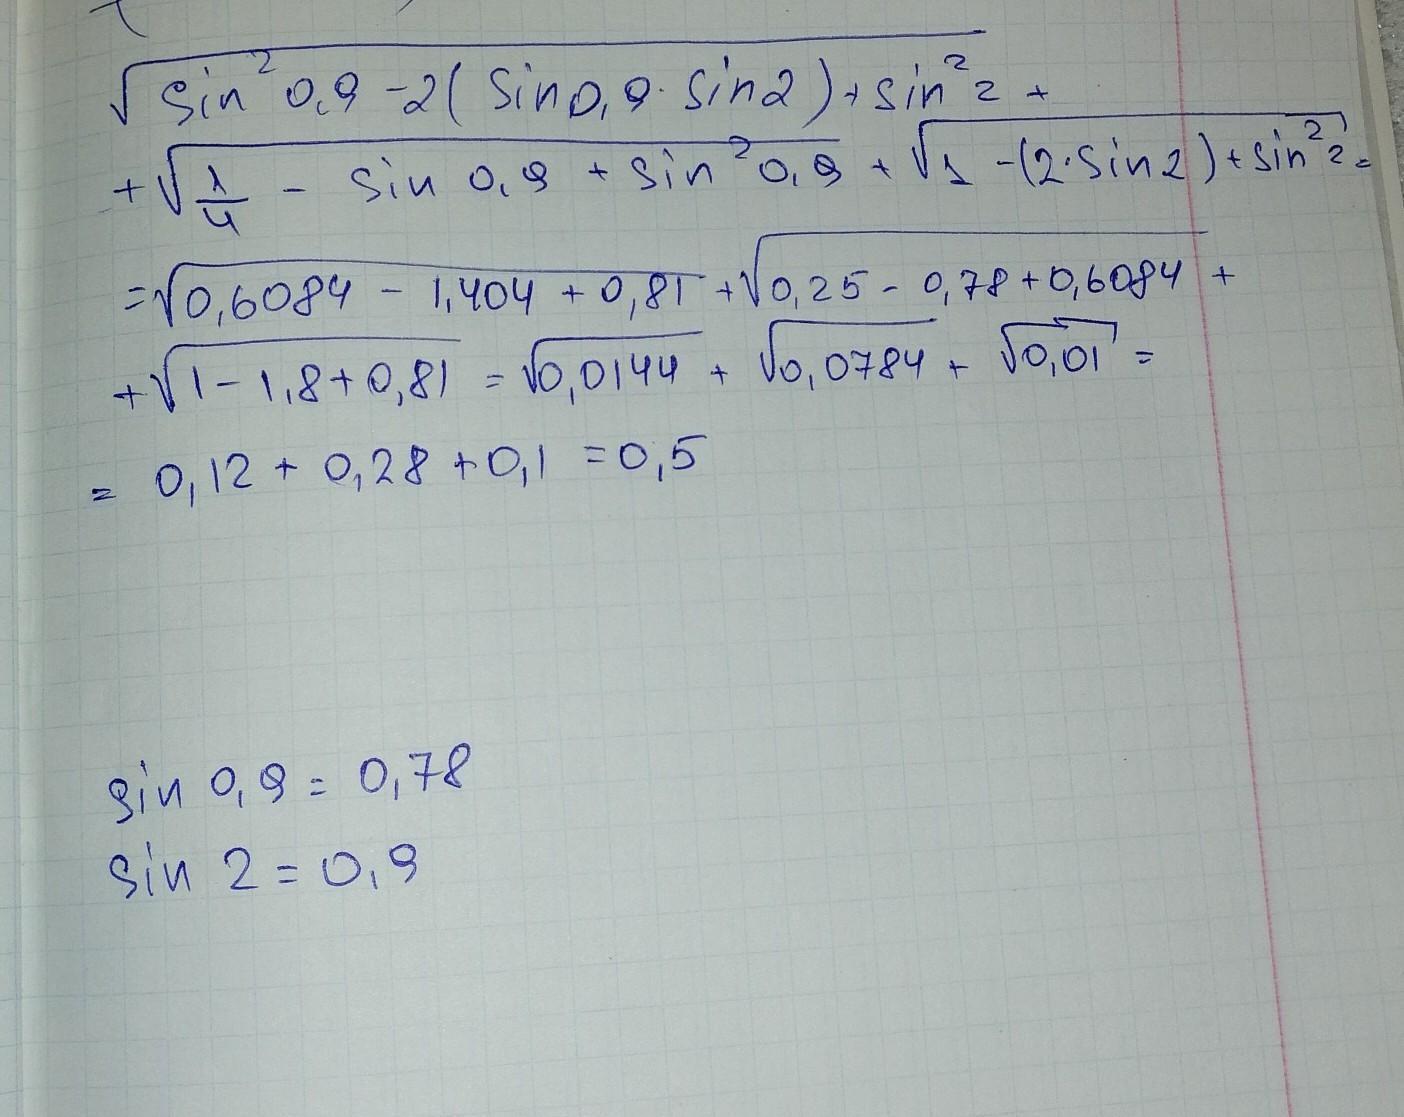 √sin²0,9 - 2(sin0,9·sin2)+sin²2 +
+√1/4 - sin 0,9 + sin²0,9 + √1 -(2·sin2)+sin²2 =
=√0,6084 - 1,404 + 0,81 +√0,25 - 0,78+0,6084 +
+√1 - 1,8+0,81 = √0,0144 + √0,0784 + √0,01 =
= 0,12 + 0,28 +0,1 =0,5
sin 0,9 = 0,78
sin 2 = 0,9